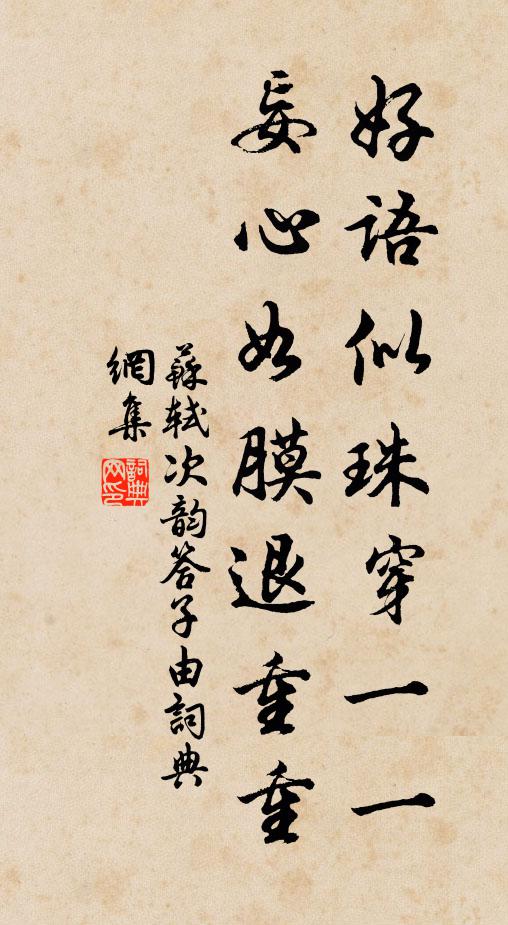 好語似珠穿一一
妄心如膜退重重
蘇軾次韵答子由詞典
網集
詞典網印